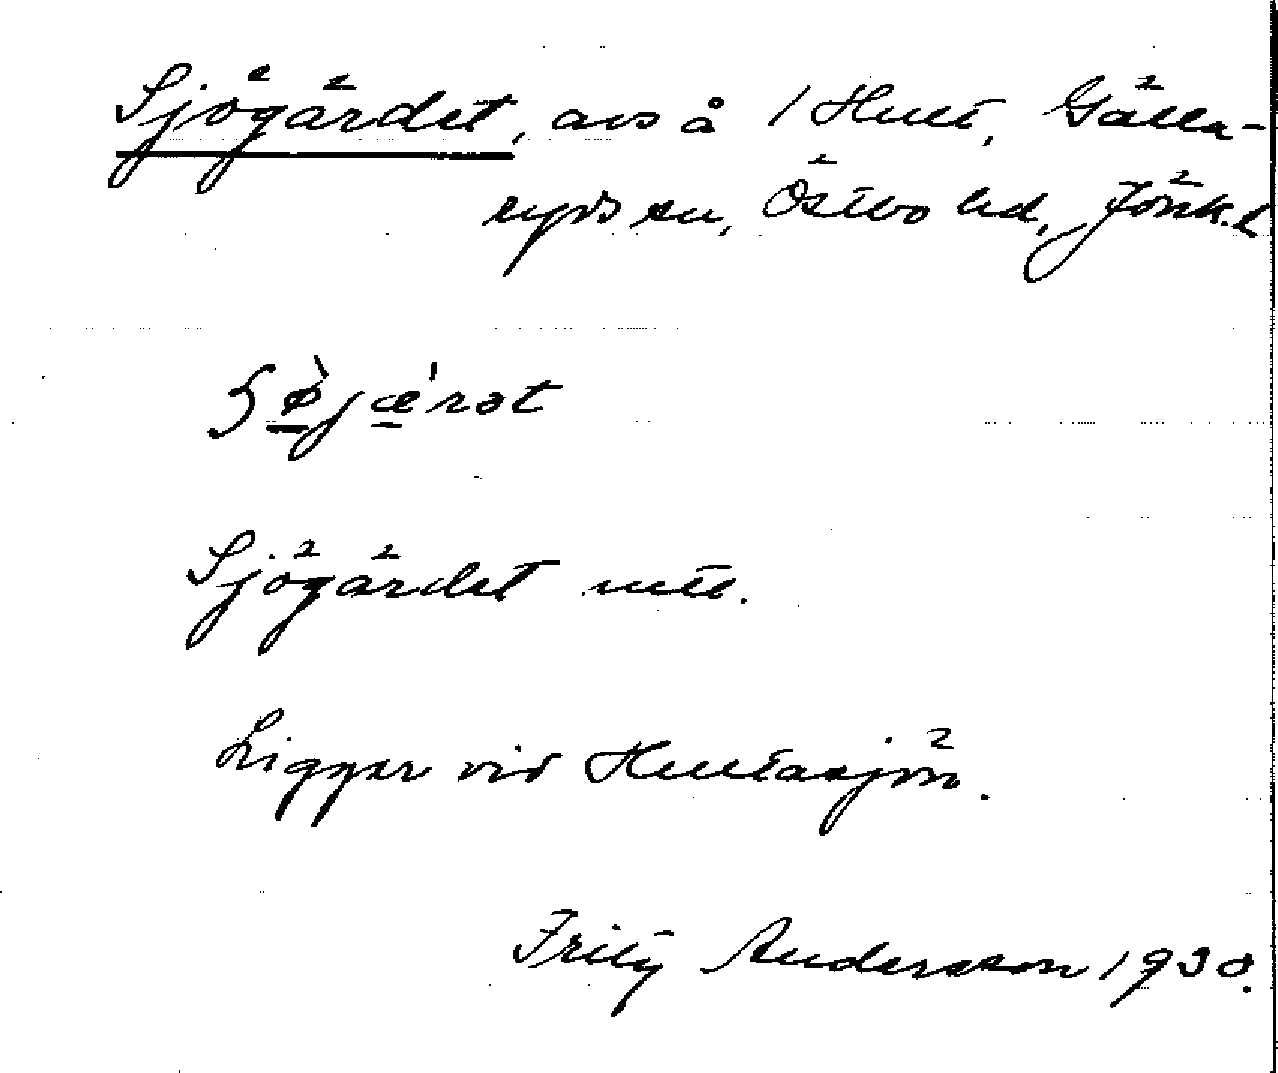 Sjögärdet, avs å 1 Hult, Gälla-
ryds sn, Östbo hd, Jönk. l
Sjögärdet
Ligger vid Hultasjön.
Fritz Andersson 1930.